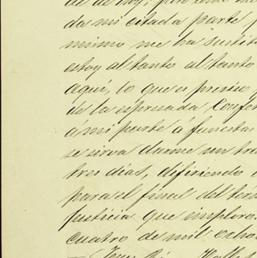 de de hoy: por
da mi citada parte
mismo me ha
estoy al tanto al tanto
aquí, lo que
de la espresada
á mi parte á funestas
se sirva darme un
tres dias, difiriendo
para el final del
justicia que imploro
cuatro de mil ocho